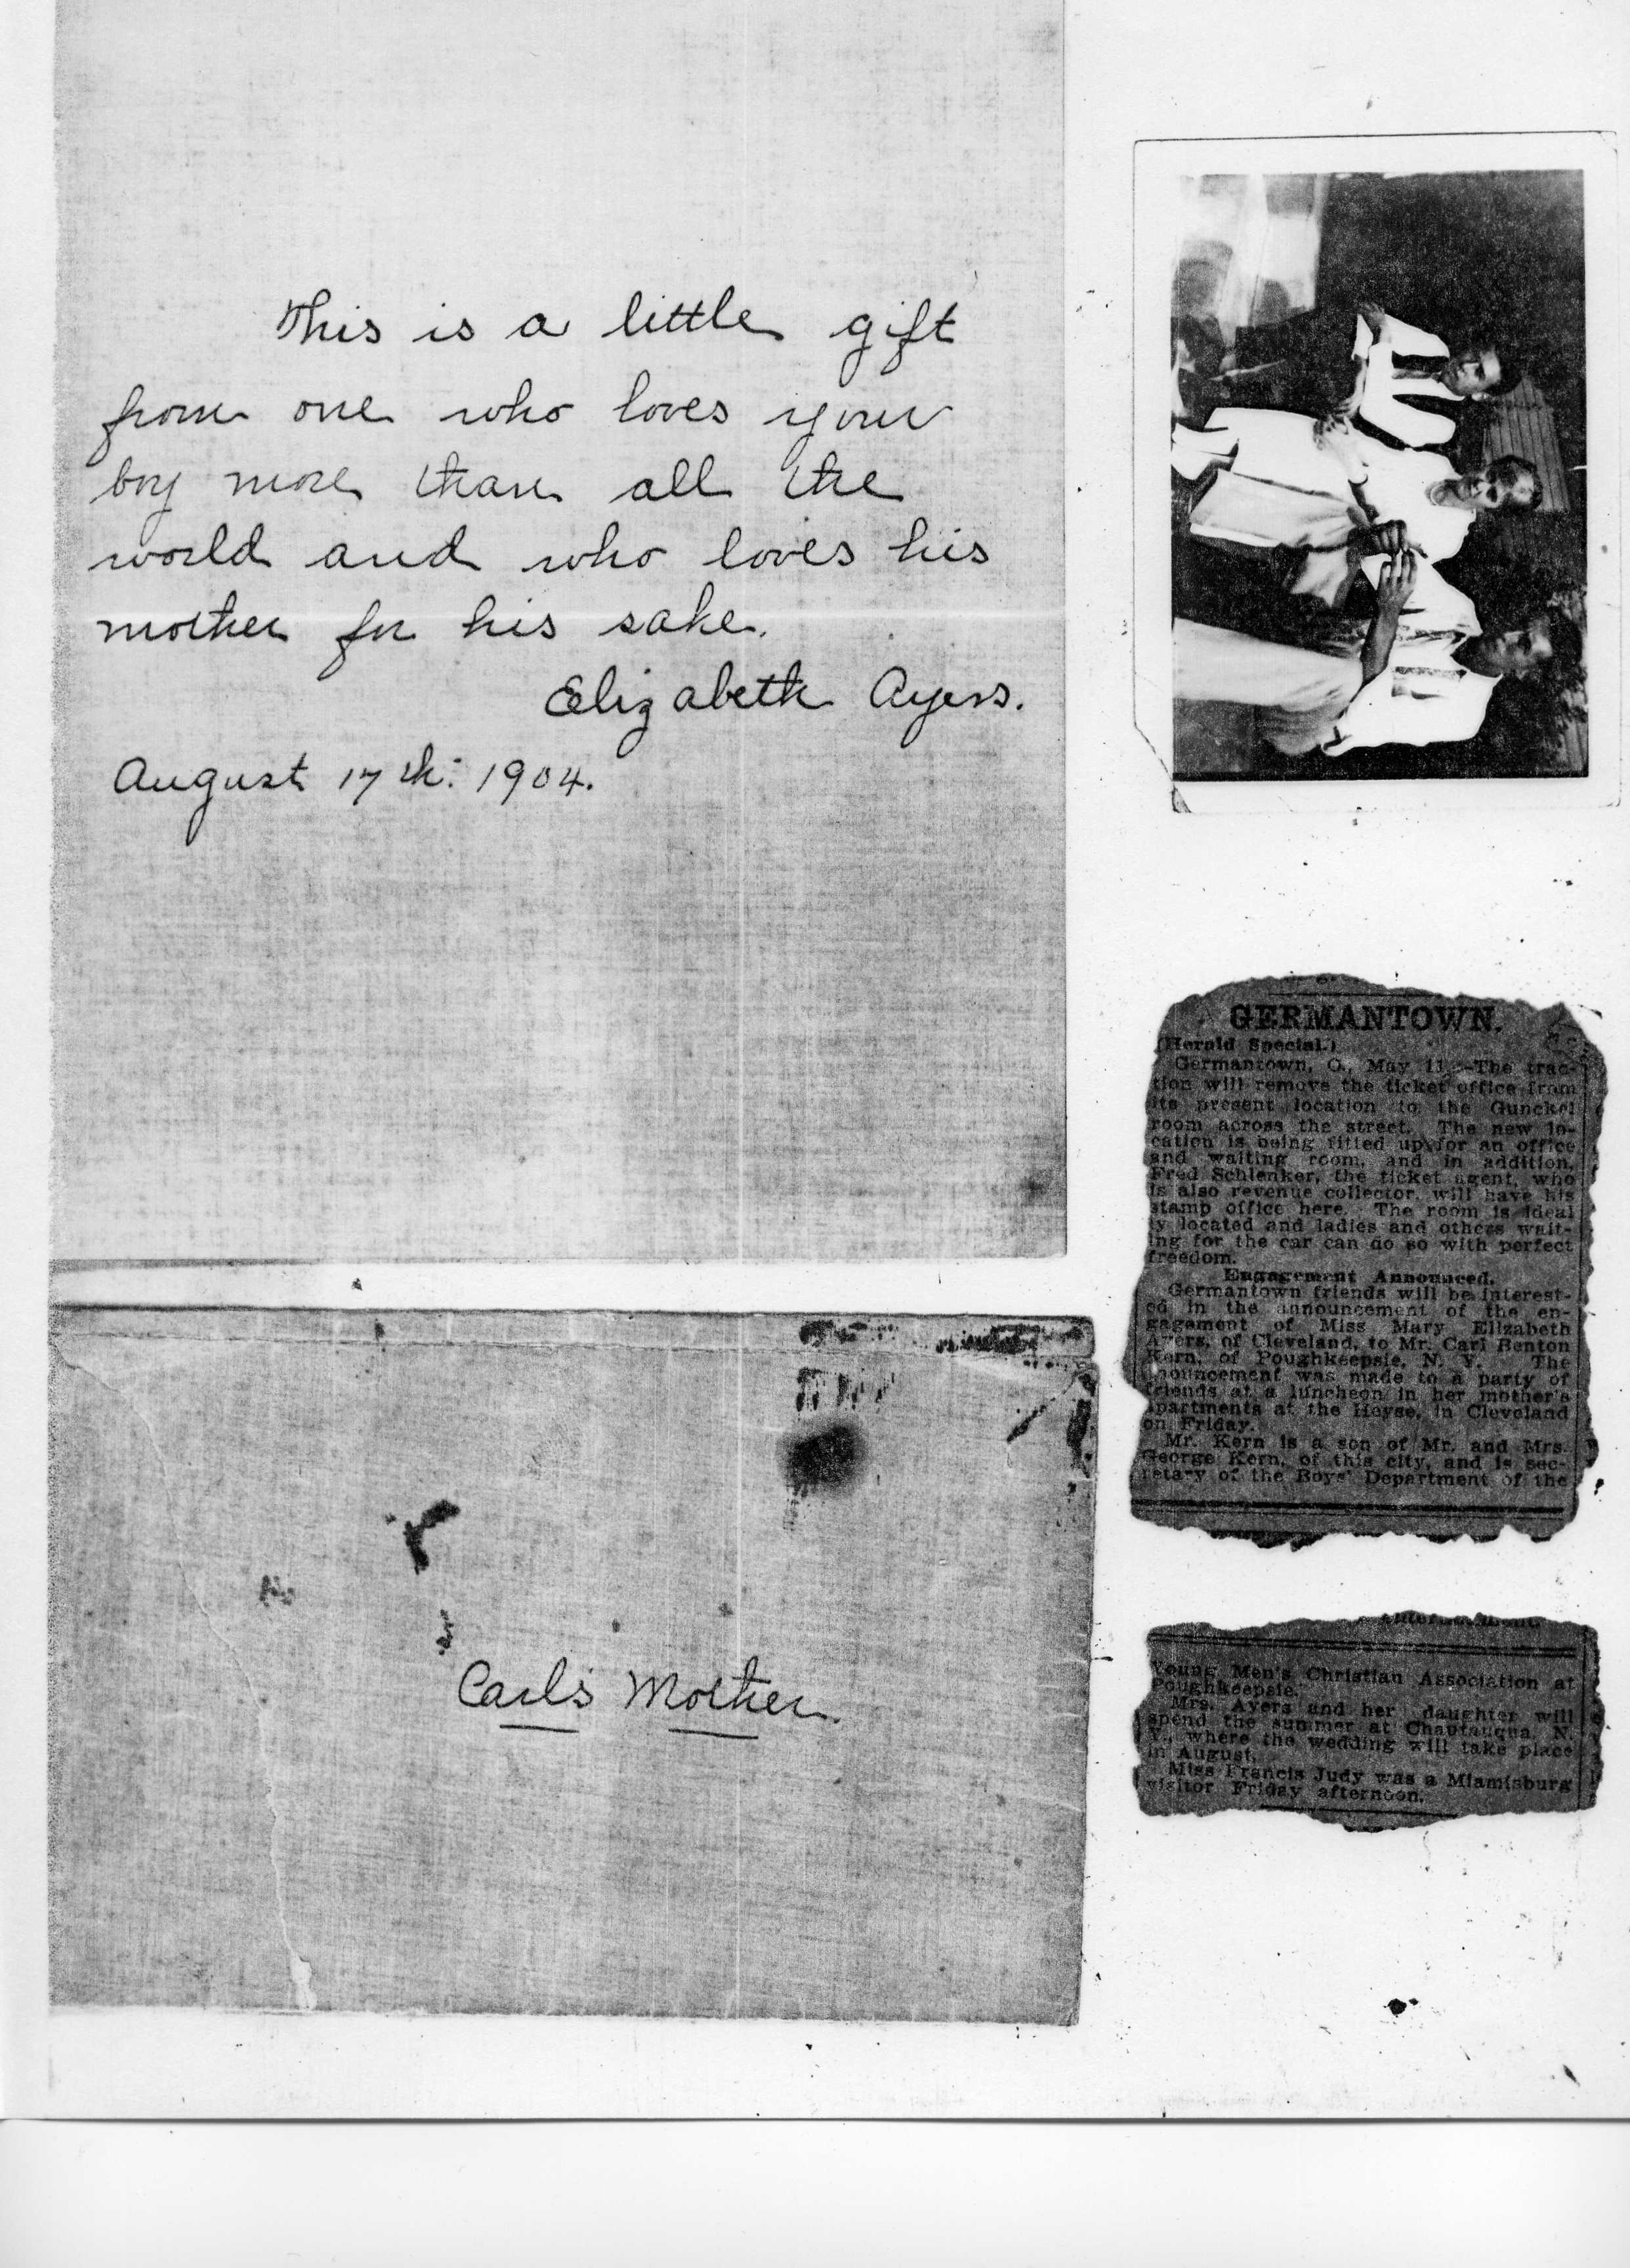 This is a little gift
from one who loves your
boy more than all the
world and who loves his
mother for his sake.
Elizabeth Ayers.
August 17th: 1904.
Carl's Mother.
GERMANTOWN.
(Herald Special.)
Germantown, O., May 11.—The trac-
tion will remove the ticket office from
its present location to the Gunckel
room across the street. The new lo-
cation is being fitted up for an office
and waiting room, and in addition,
Fred Schlenker, the ticket agent, who
is also revenue collector, will have his
stamp office here. The room is ideal
ly located and ladies and others wait-
ing for the car can do so with perfect
freedom.
Engagement Announced.
Germantown friends will be interest-
ed in the announcement of the en-
gagement of Miss Mary Elizabeth
Ayers, of Cleveland, to Mr. Carl Benton
Kern, of Poughkeepsie, N. Y. The
nouncement was made to a party of
friends at a luncheon in her mother's
apartments at the Heyse, in Cleveland
on Friday.
Mr. Kern is a son of Mr. and Mrs.
George Kern, of this city, and is sec-
retary of the Boys' Department of the
Young Men's Christian Association at
Poughkeepsie.
Mrs. Ayers and her daughter will
spend the summer at Chautauqua, N.
Y., where the wedding will take place
in August.
Miss Francis Judy was a Miamisburg
visitor Friday afternoon.